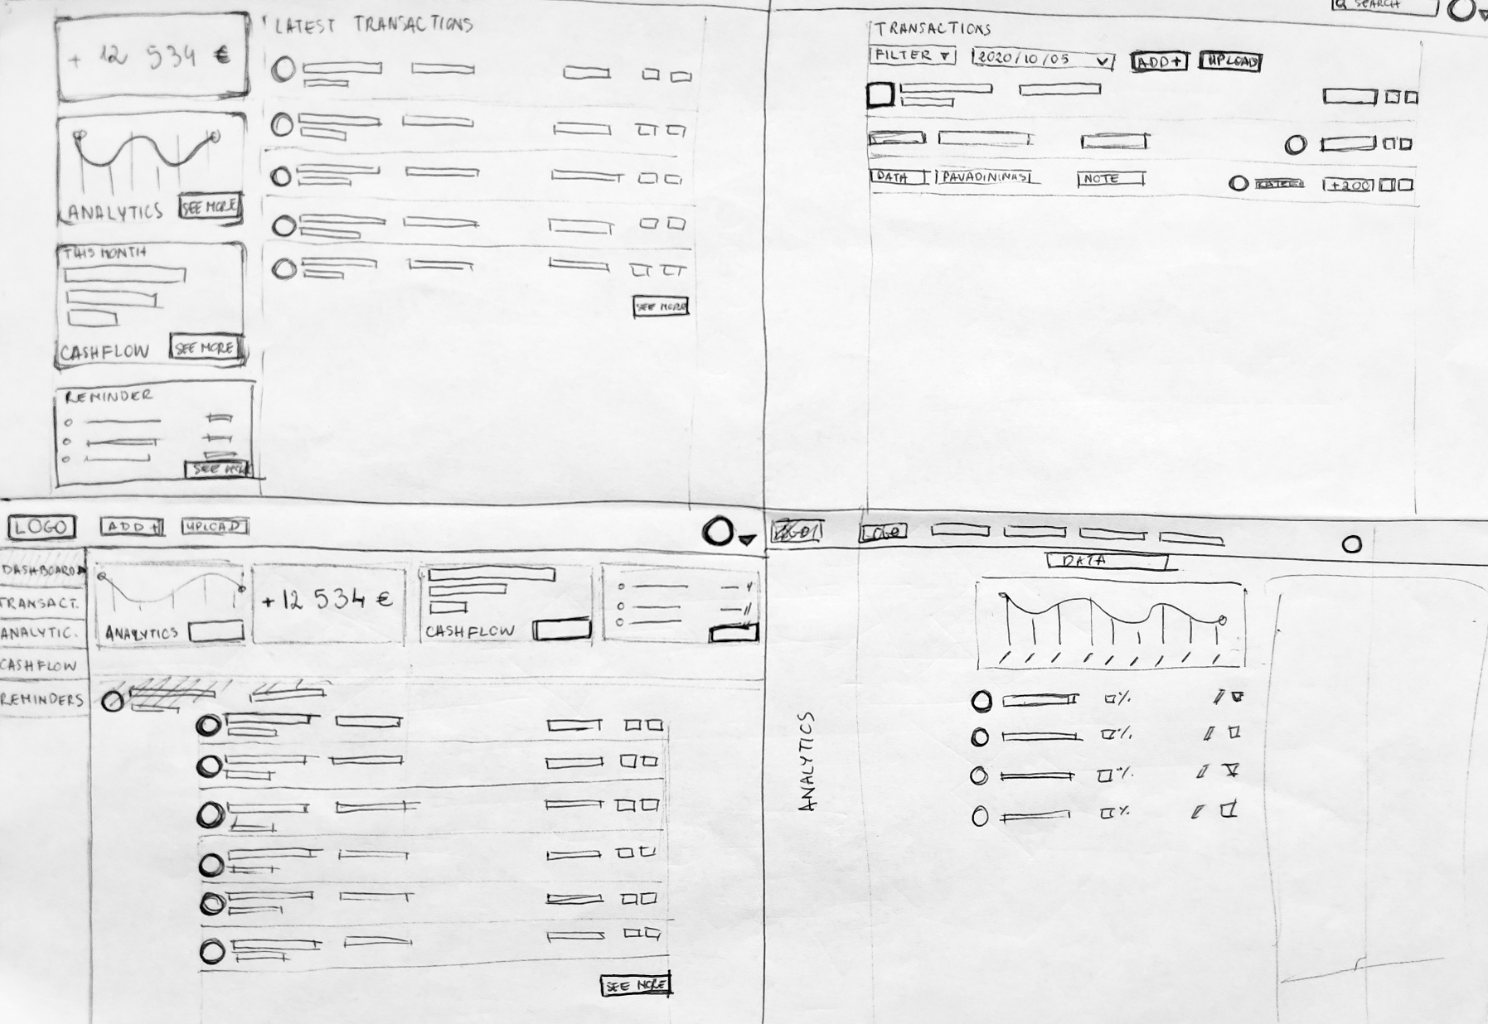 + 12 534 €
ANALYTICS SEE MORE
THIS MONTH
CASHFLOW SEE MORE
REMINDER
SEE MORE
LATEST TRANSACTIONS
SEE MORE
SEARCH
TRANSACTIONS
FILTER 2020/10/05 ADD+ UPLOAD
DATA PAVADINIMAS NOTE +200
LOGO ADD+ UPLOAD
DASHBOARD
TRANSACT.
ANALYTIC.
CASHFLOW
REMINDERS
ANALYTICS
+12 534 €
CASHFLOW
SEE MORE
LOGO
DATA
ANALYTICS
%
%
%
%